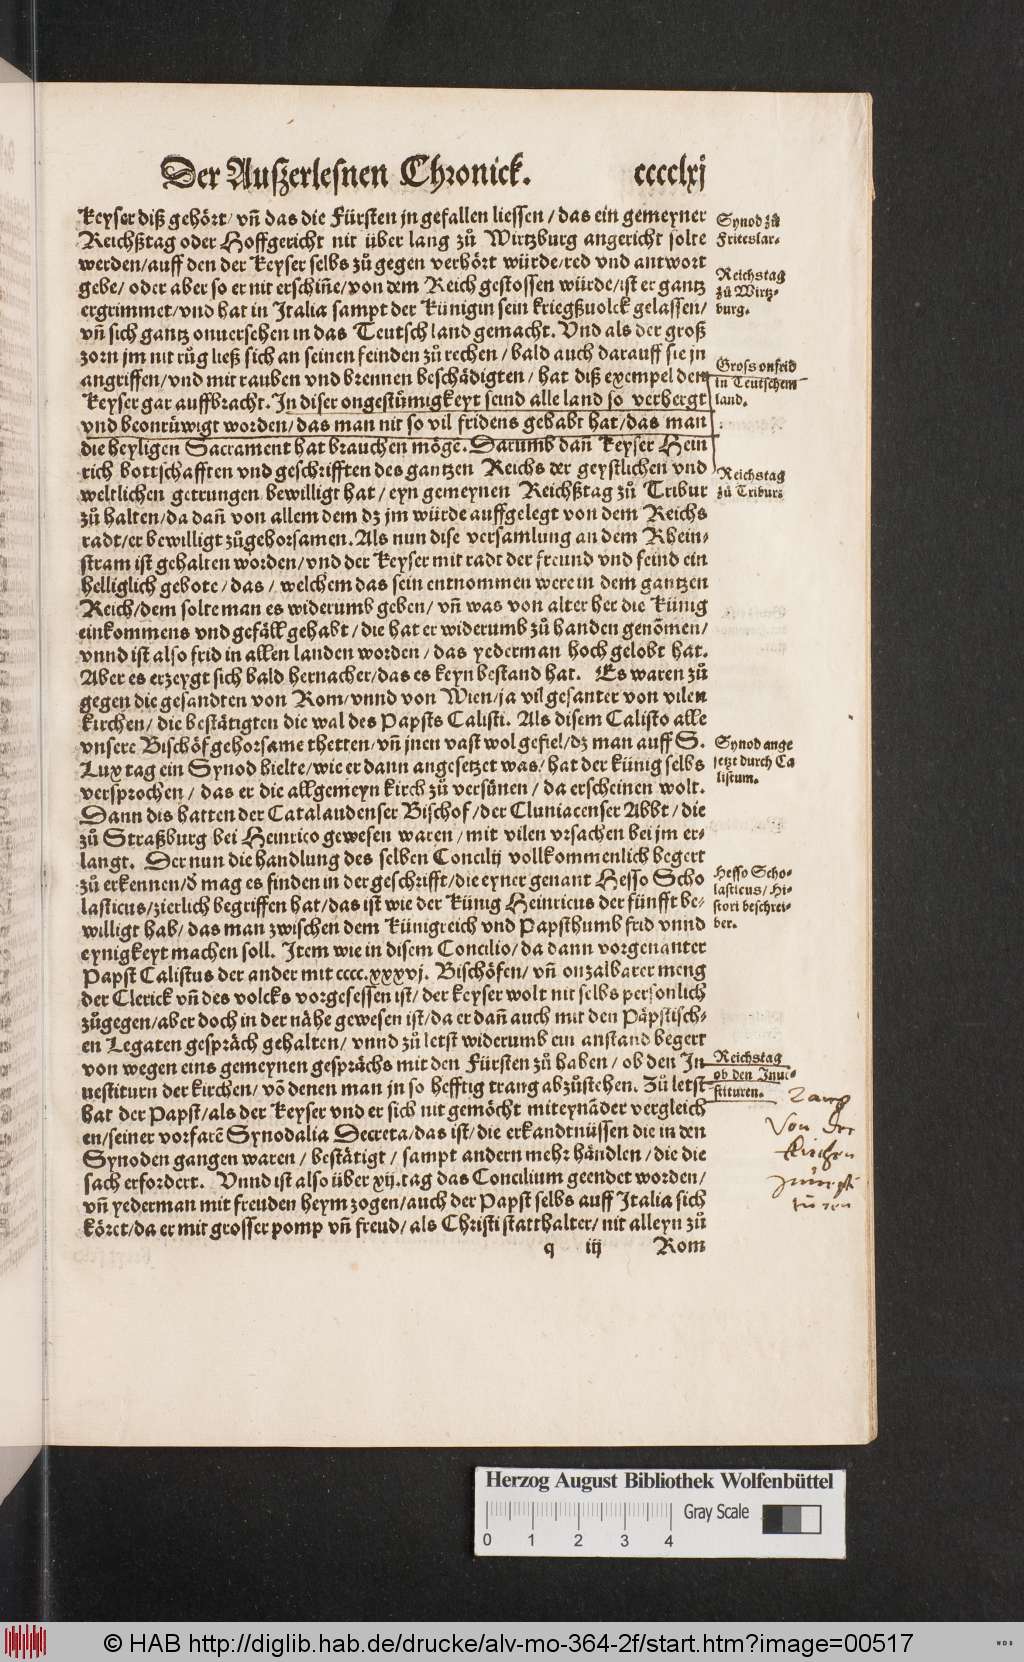 Der Auszerlesnen Chronick. cccclxj
Keyser diß gehört/ vñ das die Fürsten jn gefallen liessen / das ein gemeyner
Reichßtag oder Hoffgericht nit über lang zů Wirtzburg angericht solte
werden/auff den der Keyser selbs zů gegen verhört würde/red vnd antwort
gebe/ oder aber so er nit erschiñe/von dem Reich gestossen würde/ist er gantz
ergrimmet/vnd hat in Italia sampt der Künigin sein kriegßuolck gelassen/
vñ sich gantz onuersehen in das Teutsch land gemacht. Vnd als der groß
zorn jm nit růg ließ sich an seinen feinden zů rechen / bald auch darauff sie jn
angriffen/vnd mit rauben vnd brennen beschädigten / hat diß exempel dem
Keyser gar auffbracht. In diser ongestümigkeyt seind alle land so verhergt
vnd beonrůwigt worden/das man nit so vil fridens gehabt hat/das man
die heyligen Sacrament hat brauchen mögẽ. Darumb dañ Keyser Hein
rich bottschafften vnd geschrifften des gantzen Reichs der geystlichen vnd
weltlichen getrungen bewilligt hat / eyn gemeynen Reichßtag zů Tribur
zů halten/da dañ von allem dem dz jm würde auffgelegt von dem Reichs
radt/er bewilligt zůgehorsamen. Als nun dise versamlung an dem Rhein-
stram ist gehalten worden/vnd der Keyser mit radt der freund vnd feind ein
helliglich gebote/das / welchem das sein entnommen were in dem gantzen
Reich/dem solte man es widerumb geben/ vñ was von alter her die Künig
einkommens vnd gefäll gehabt / die hat er widerumb zů handen genõmen/
vnnd ist also frid in allen landen worden / das yederman hoch gelobt hat.
Aber es erzeygt sich bald hernacher/das es keyn bestand hat. Es waren zů
gegen die gesandten von Rom/vnnd von Wien/ja vil gesanter von vilen
kirchen/ die bestätigten die wal des Papsts Calisti. Als disem Calisto alle
vnsere Bischöf gehorsame thetten/vñ jnen vast wol gefiel/dz man auff S.
Lux tag ein Synod hielte/wie er dann angesetzet was/hat der künig selbs
versprochen / das er die allgemeyn kirch zů versünen / da erscheinen wolt.
Dann dis hatten der Catalaudenser Bischof/der Cluniacenser Abbt / die
zů Straßburg bei Heinrico gewesen waren / mit vilen vrsachen bei jm er-
langt. Der nun die handlung des selben Concilij vollkommenlich begert
zů erkennen/d' mag es finden in der geschrifft/die eyner genant Hesso Scho
lasticus/zierlich begriffen hat/das ist wie der Künig Heinricus der fünfft be-
willigt hab/das man zwischen dem Künigreich vnd Papsthumb frid vnnd
eynigkeyt machen soll. Item wie in disem Concilio/da dann vorgenanter
Papst Calistus der ander mit cccc.xxxvj. Bischöfen/ vñ onzalbarer meng
der Clerick vñ des volcks vorgesessen ist/der keyser wolt nit selbs personlich
zůgegen/aber doch in der nähe gewesen ist/da er dañ auch mit den Päpstisch-
en Legaten gespräch gehalten/ vnnd zů letst widerumb ein anstand begert
von wegen eins gemeynen gesprächs mit den Fürsten zů haben / ob den In
uestiturn der kirchen/ võ denen man jn so hefftig trang abzůstehen. Zů letst
hat der Papst/als der Keyser vnd er sich nit gemöcht miteynãder vergleich
en/seiner vorfarẽ Synodalia Decreta/das ist/die erkandtnüssen die in den
Synoden gangen waren / bestätigt / sampt andern mehr händlen / die die
sach erfordert. Vnnd ist also über xij.tag das Concilium geendet worden/
vñ yederman mit freuden heym zogen/auch der Papst selbs auff Italia sich
köret/da er mit grosser pomp vñ freud/ als Christi statthalter/ nit alleyn zů
q iij Rom
Synod zů
Frittslar.
Reichstag
zů Wirtz-
burg.
Gross onfrid
in Teutschem
land.
Reichstag
zů Tribur.
Synod ange
setzt durch Ca
listum.
Hesso Scho-
lasticus/ Hi-
stori beschrei-
ber.
Reichstag
ob den Inue-
stituren.
Von der
Kirchen
Herzog August Bibliothek Wolfenbüttel
0 1 2 3 4
Gray Scale
© HAB http://diglib.hab.de/drucke/alv-mo-364-2f/start.htm?image=00517